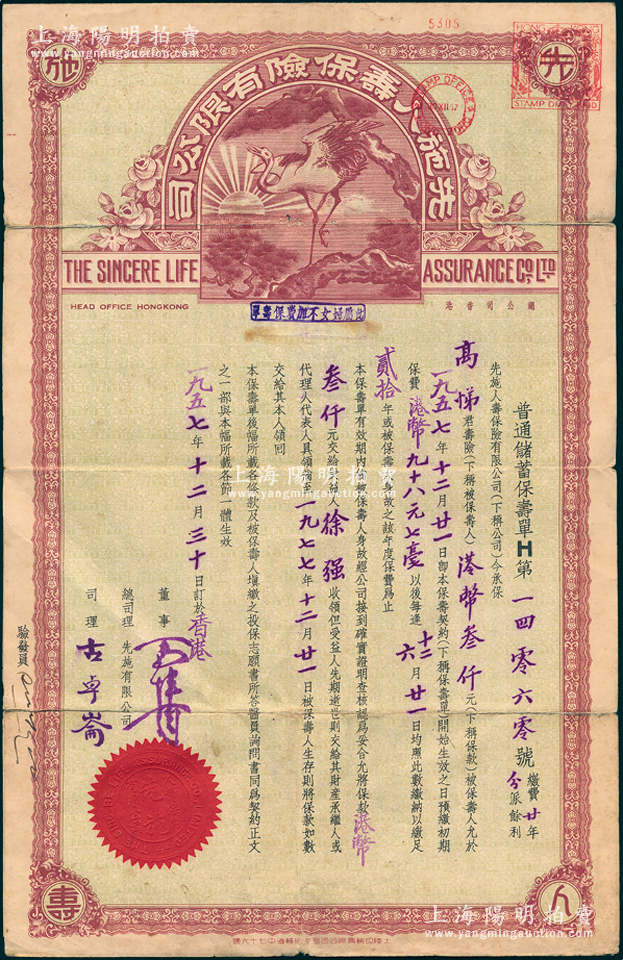 上海陽明拍賣
www.yangmingauction.com
5305
HONG KONG
STAMP OFFICE
STAMP DUTY PAID
先
施
先施人壽保險有限公司
THE SINCERE LIFE ASSURANCE Co. LTD.
HEAD OFFICE HONGKONG
總公司香港
此保婦女不加費保壽單
普通儲蓄保壽單H第一四零六零號
繳費廿年
分派餘利
先施人壽保險有限公司(下稱公司)今承保
高悌君壽險(下稱被保壽人)港幣叁仟元(下稱保款)被保壽人允於
一九五七年十二月廿一日即本保壽契約(下稱保壽單)開始生效之日預繳初期
保費港幣九十八元七毫以後每逢六十二月廿一日均照此數繳納以繳足
貳拾年或被保壽人身故之該年度保費為止
本保壽單有效期內如被保壽人身故經公司接到確實證明查核認為妥合允將保款港幣
叁仟元交給受益人徐强收領但受益人先期逝世則交給其財產承繼人或
代理人代表人具領倘至一九七七年十二月廿一日被保壽人生存則將保款如數
交給其本人領回
本保壽單後幅所載章程條款及被保壽人填繳之投保志願書所答醫員詢問書同為契約正文
之一部與本幅所載各節一體生效
一九五七年十二月三十日訂於香港
董事
總司理 先施有限公司
司理 古卓崙
驗發員
上海陽明拍賣
www.yangmingauction.com
壽
人
上海陽明拍賣
www.yangmingauction.com